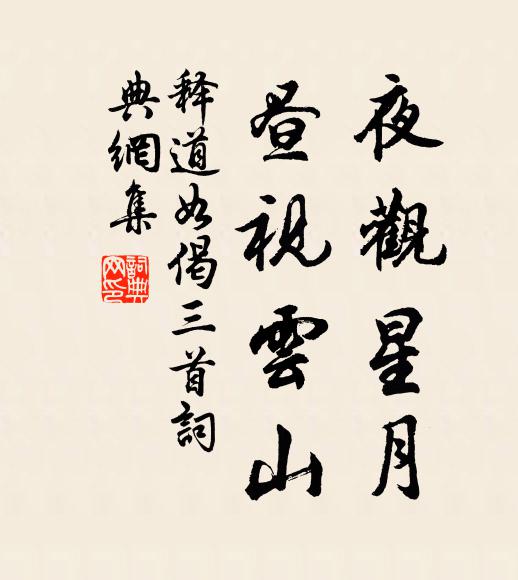 夜觀星月
昼視雲山
释道如偈三首詞
典網集
詞典
网印